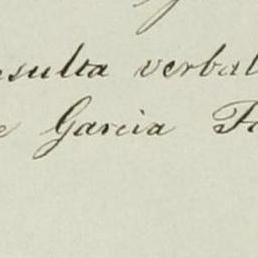 sulta verbal
Garcia